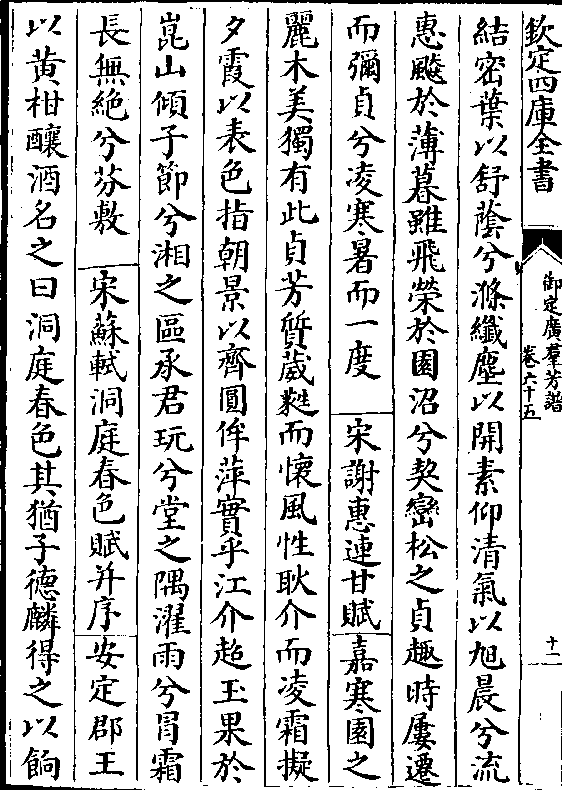 欽定四庫全書
御定廣羣芳譜
卷六十五
十一
結密葉以舒蔭兮滌纖塵以開素仰清氣以旭晨兮流
惠飈於薄暮雖飛榮於園沼兮契巒松之貞趣時屢遷
而彌貞兮凌寒暑而一度 宋謝惠連甘賦 嘉寒園之
麗木美獨有此貞芳質葳蕤而懷風性耿介而凌霜擬
夕霞以表色指朝景以齊圓侔萍實乎江介超玉果於
崑山傾子節兮湘之區承君玩兮堂之隅濯雨兮冐霜
長無絶兮芬敷 宋蘇軾洞庭春色賦并序 安定郡王
以黄柑釀酒名之曰洞庭春色其猶子德麟得之以餉